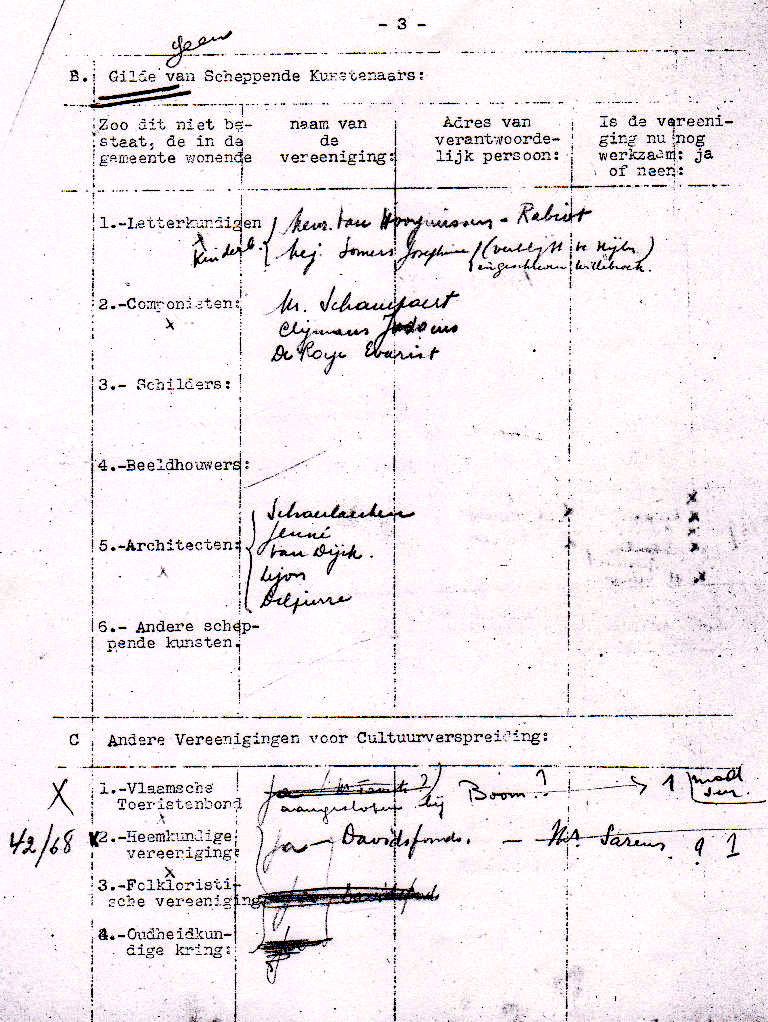 - 3 -
geen
B. Gilde van Scheppende Kunstenaars:
Zoo dit niet be-
staat, de in de
gemeente wonende
naam van
de
vereeniging:
Adres van
verantwoorde-
lijk persoon:
Is de vereeni-
ging nu nog
werkzaam: ja
of neen:
1.-Letterkundigen
Kinderb.
Mevr. Van Hoogenissens - Rabiot
Mej. Somers Josephine (verblijft te
ingeschreven Willebroek.
2.-Componisten:
x
Mr. Schauepaert
Clijmans
De Roye Evarist
3.- Schilders:
4.-Beeldhouwers:
5.-Architecten:
x
Schaerlaecken
Jenné
Van Dijck.
Lijon
Delpierre
6.- Andere schep-
pende kunsten.
C Andere Vereenigingen voor Cultuurverspreiding:
X 1.-Vlaamsche
Toeristenbond
x
aangesloten bij Boom?
1
42/68 x 2.-Heemkundige
vereeniging:
x
Ja - Davidsfonds. - Mr. Sarens ? 1
3.-Folkloristi-
sche vereeniging
4.-Oudheidkun-
dige kring: